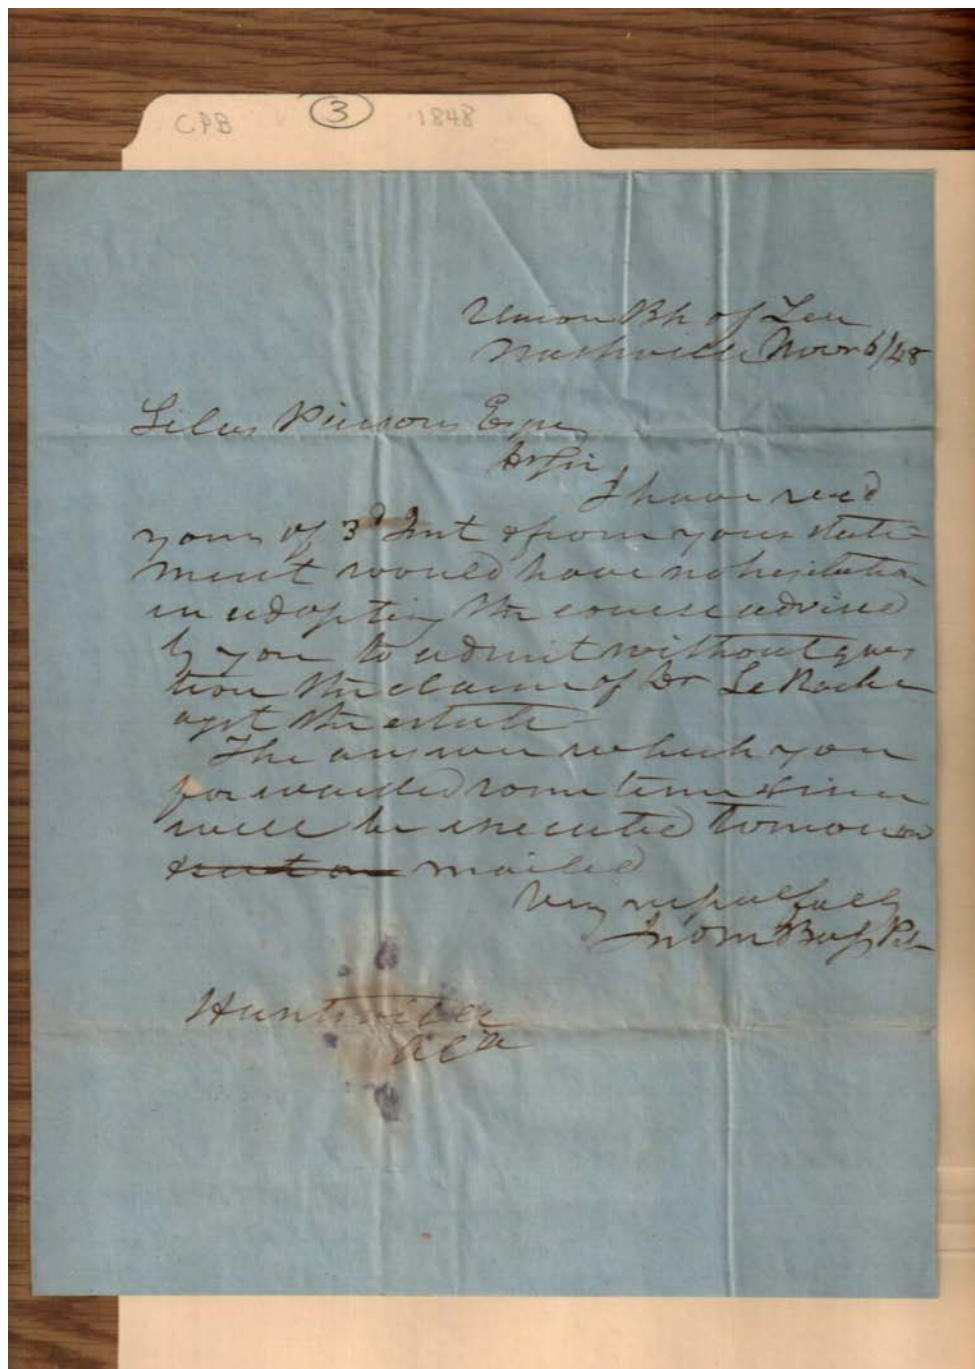 CPB 3 1848
Union Bk of Ten
Nashville Novr 6/48
Silas Parsons Esqr
Dr Sir
I have recd
yours of 3d Inst & from your state-
ment would have no hesitation
in adopting the course advised
by you to admit without ques
tion the claim of Dr LeRoche
agst the estate
The answer which you
forwarded some time since
will be executed tomorrow
& mailed
Very respectfully
Jno M Bass Pst
Huntsville
Ala